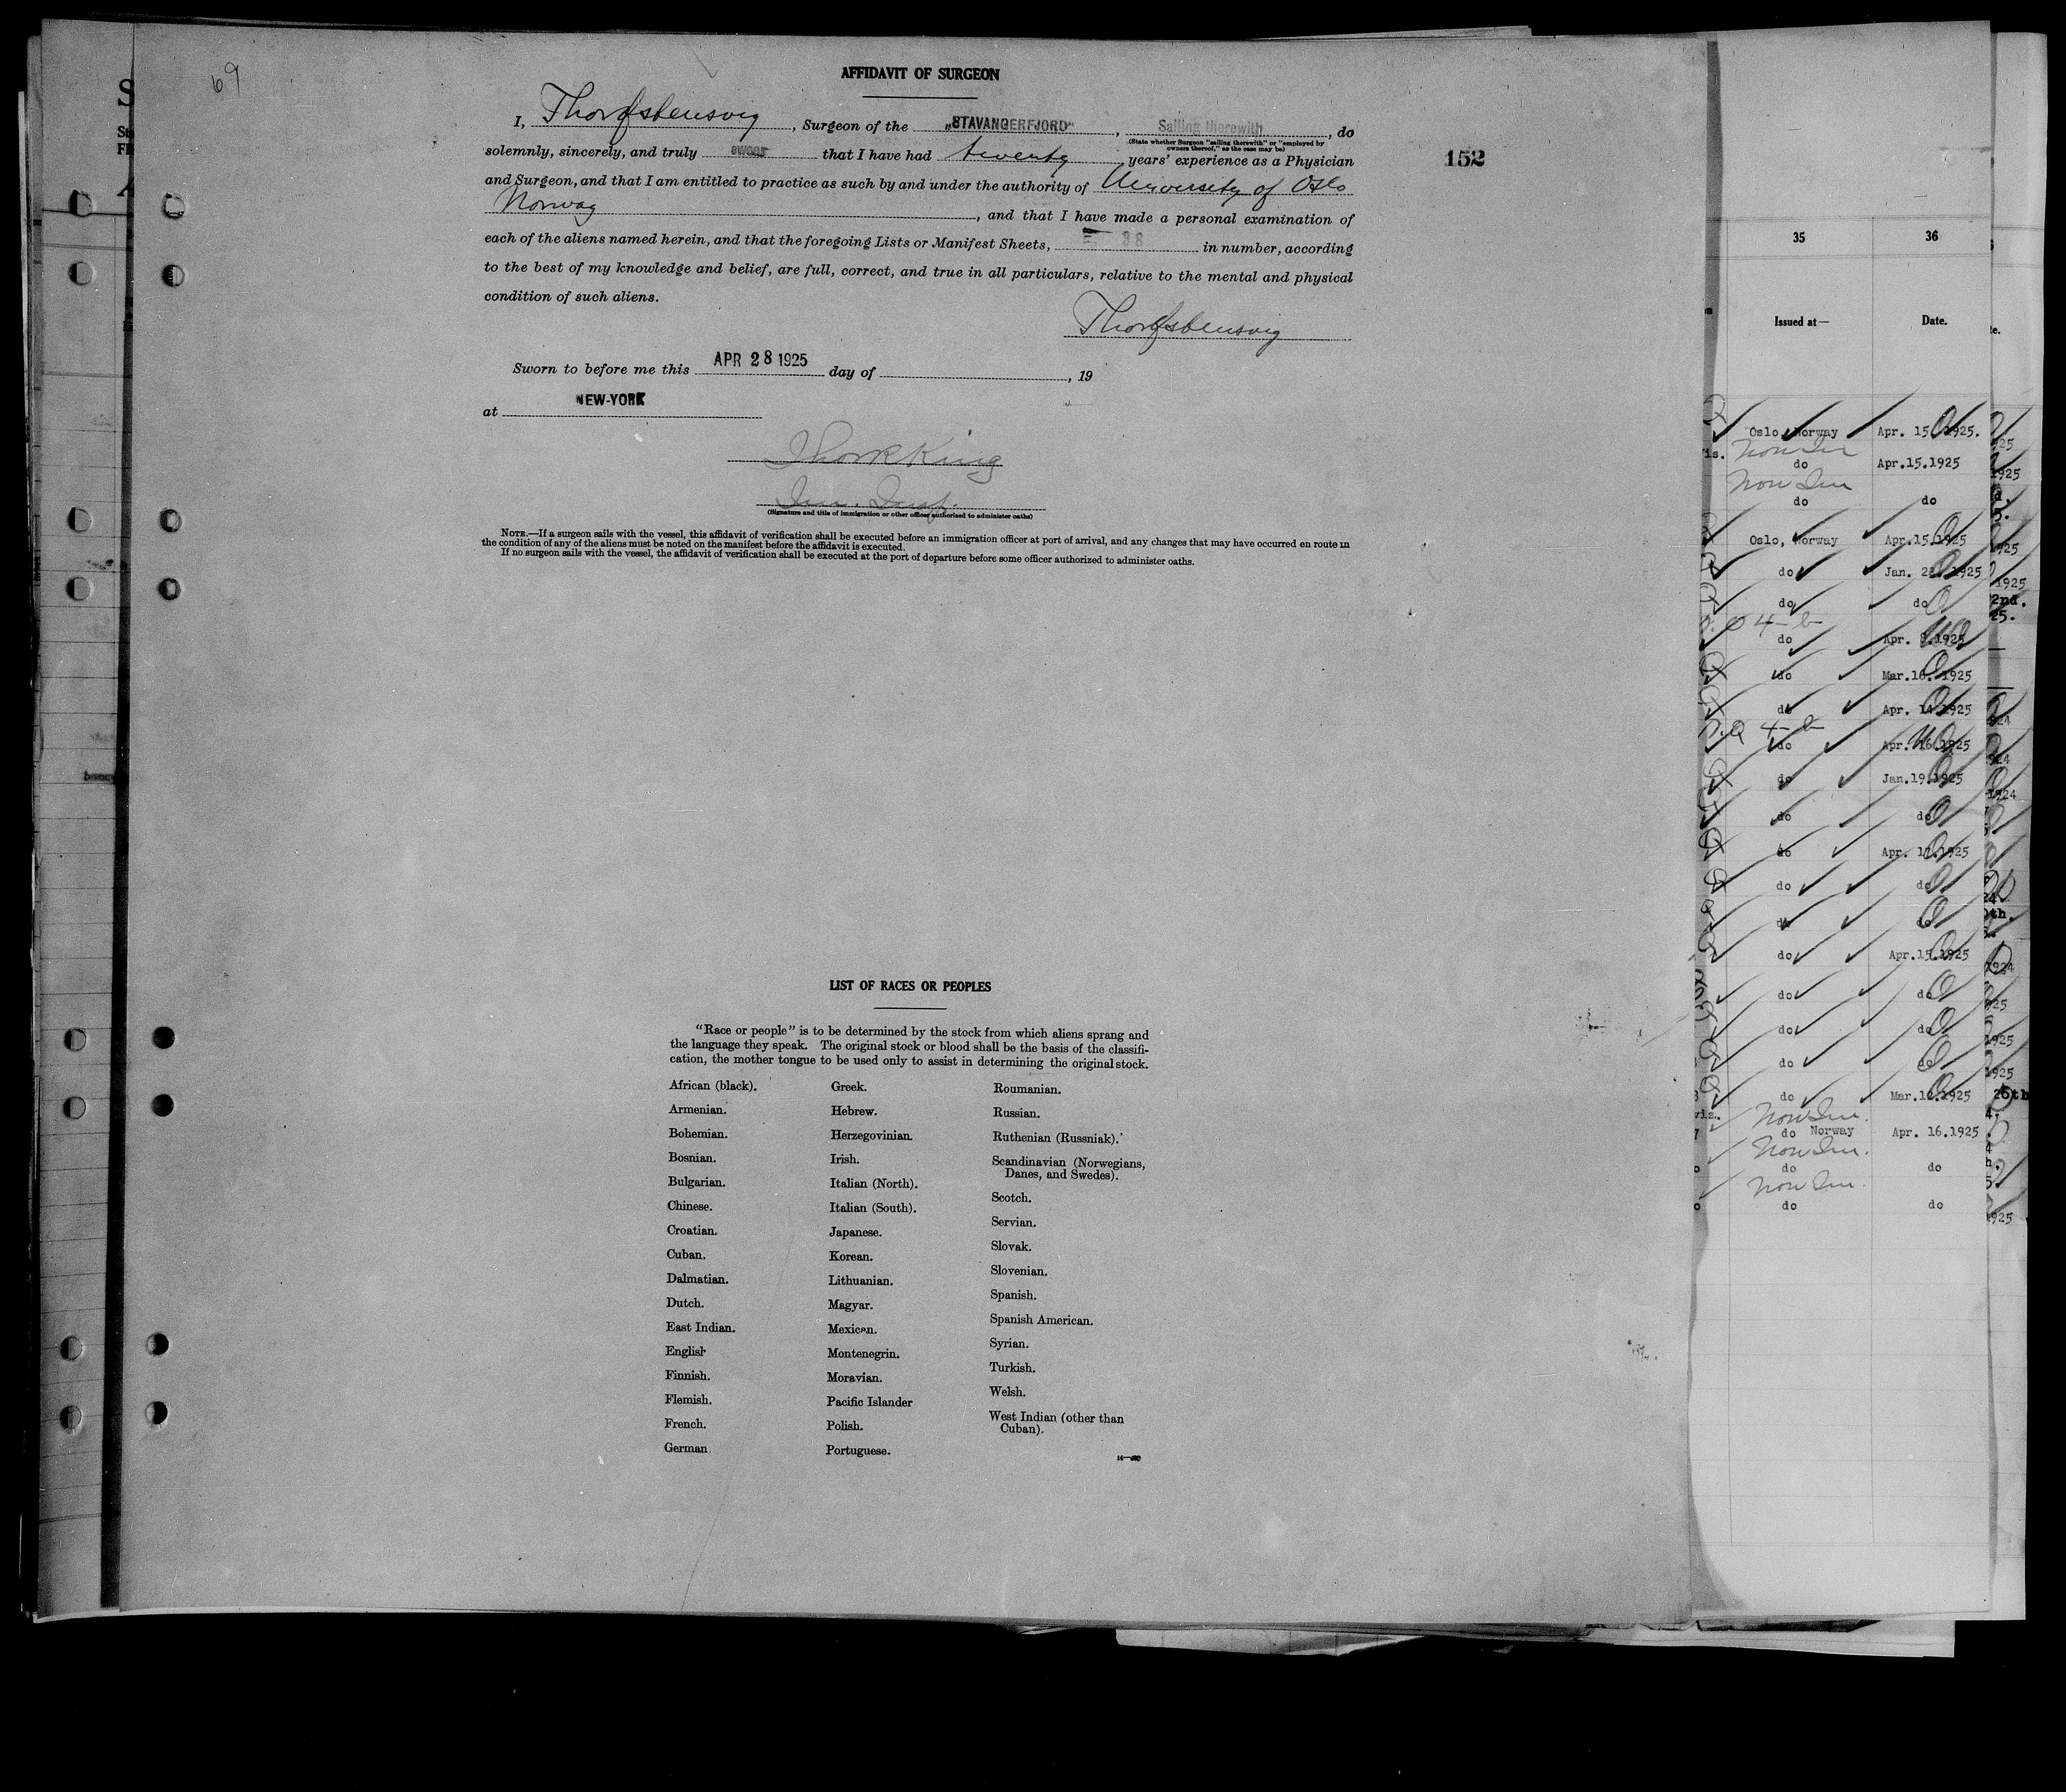 69
AFFIDAVIT OF SURGEON
I, Thor Østensvig, Surgeon of the „STAVANGERFJORD“, Sailing therewith, do
(State whether Surgeon "sailing therewith" or "employed by
owners thereof," as the case may be)
solemnly, sincerely, and truly swear that I have had twenty years' experience as a Physician
152
and Surgeon, and that I am entitled to practice as such by and under the authority of University of Oslo
Norway, and that I have made a personal examination of
each of the aliens named herein, and that the foregoing Lists or Manifest Sheets, 38 in number, according
to the best of my knowledge and belief, are full, correct, and true in all particulars, relative to the mental and physical
condition of such aliens.
Thor Østensvig
Sworn to before me this APR 28 1925 day of , 19
at NEW-YORK
King
(Signature and title of immigration or other officer authorized to administer oaths)
NOTE.—If a surgeon sails with the vessel, this affidavit of verification shall be executed before an immigration officer at port of arrival, and any changes that may have occurred en route in
the condition of any of the aliens must be noted on the manifest before the affidavit is executed.
If no surgeon sails with the vessel, the affidavit of verification shall be executed at the port of departure before some officer authorized to administer oaths.
LIST OF RACES OR PEOPLES
"Race or people" is to be determined by the stock from which aliens sprang and
the language they speak. The original stock or blood shall be the basis of the classifi-
cation, the mother tongue to be used only to assist in determining the original stock.
African (black).
Armenian.
Bohemian.
Bosnian.
Bulgarian.
Chinese.
Croatian.
Cuban.
Dalmatian.
Dutch.
East Indian.
English
Finnish.
Flemish.
French.
German
Greek.
Hebrew.
Herzegovinian.
Irish.
Italian (North).
Italian (South).
Japanese.
Korean.
Lithuanian.
Magyar.
Mexican.
Montenegrin.
Moravian.
Pacific Islander
Polish.
Portuguese.
Roumanian.
Russian.
Ruthenian (Russniak).
Scandinavian (Norwegians,
Danes, and Swedes).
Scotch.
Servian.
Slovak.
Slovenian.
Spanish.
Spanish American.
Syrian.
Turkish.
Welsh.
West Indian (other than
Cuban).
35 36
Issued at— Date.
Oslo, Norway Apr. 15 1925.
Non Im
do Apr.15.1925
Non Im
do do
Oslo, Norway Apr.15.1925
do Jan. 1925
do do
4-b
do Apr. 8.1925
do Mar.16.1925
do Apr. 14.1925
4-b
do Apr. 16.1925
do Jan.19.1925
do do
do Apr. 17.1925
do do
do do
do Apr.15.1925
do do
do do
do do
do Mar. 1925
Non Im.
do Norway Apr. 16.1925
Non Im.
do do
Non Im.
do do